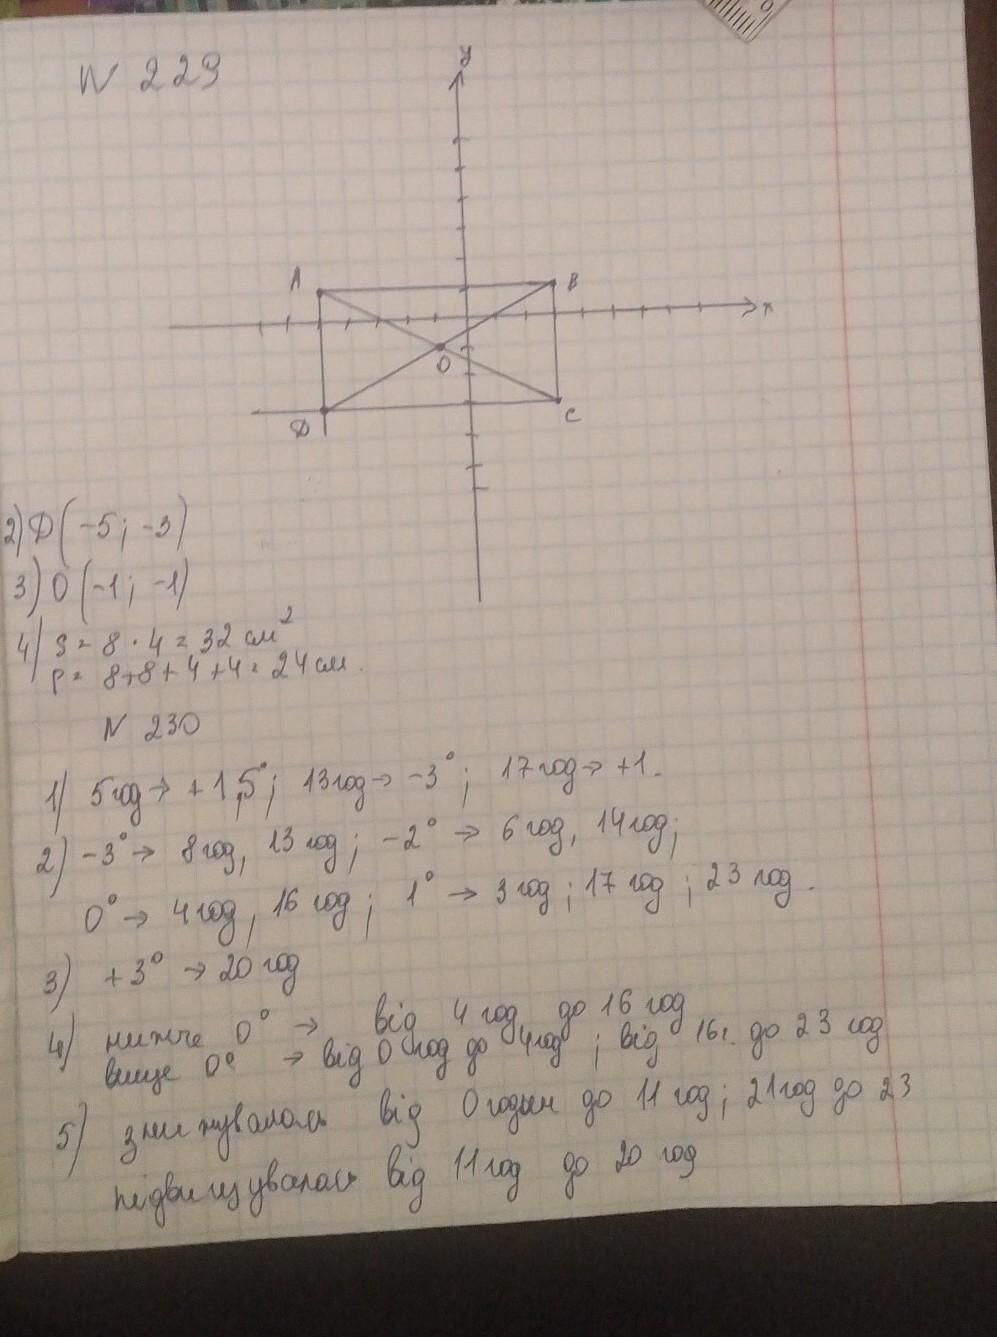 N 229
y
A
B
x
O
D
C
2) D (-5; -3)
3) O (-1; -1)
4) S = 8 · 4 = 32 см²
P = 8+8+4+4 = 24 см.
N 230
1) 5 год → +1,5°; 13 год → -3°; 17 год → +1.
2) -3° → 8 год, 13 год; -2° → 6 год, 14 год;
0° → 4 год, 16 год; 1° → 3 год; 17 год; 23 год.
3) +3° → 20 год
4) нижче 0° → від 4 год до 16 год
вище 0° → від 0 год до 4 год; від 16 г. до 23 год
5) знижувалась від 0 годин до 11 год; 21 год до 23
підвищувалась від 11 год до 20 год